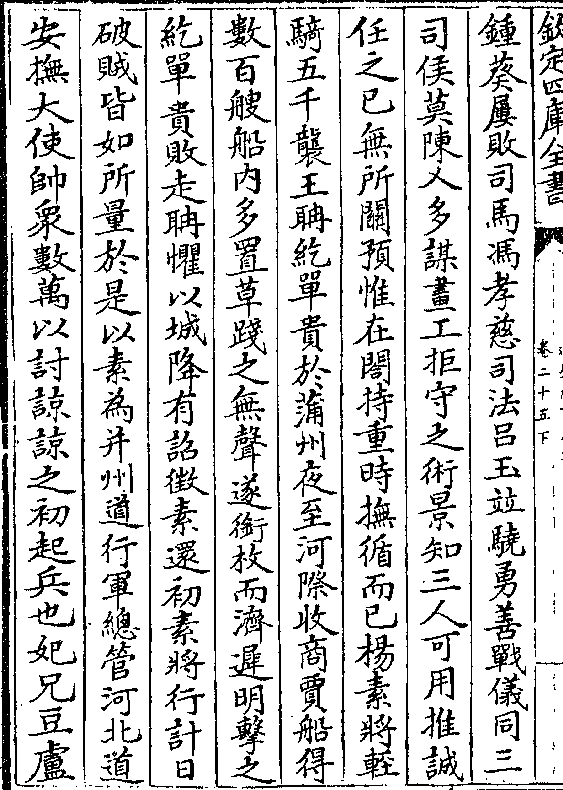 欽定四庫全書
卷二十五下
鍾葵屢敗司馬馮孝慈司法吕玉並驍勇善戰儀同三
司侯莫陳乂多謀畫工拒守之術景知三人可用推誠
任之己無所關預惟在閤持重時撫循而已楊素將輕
騎五千襲王聃紇單貴於蒲州夜至河際收商賈船得
數百艘船内多置草踐之無聲遂銜枚而濟遲明擊之
紇單貴敗走聃懼以城降有詔徴素還初素將行計日
破賊皆如所量於是以素為并州道行軍總管河北道
安撫大使帥衆數萬以討諒諒之初起兵也妃兄豆盧